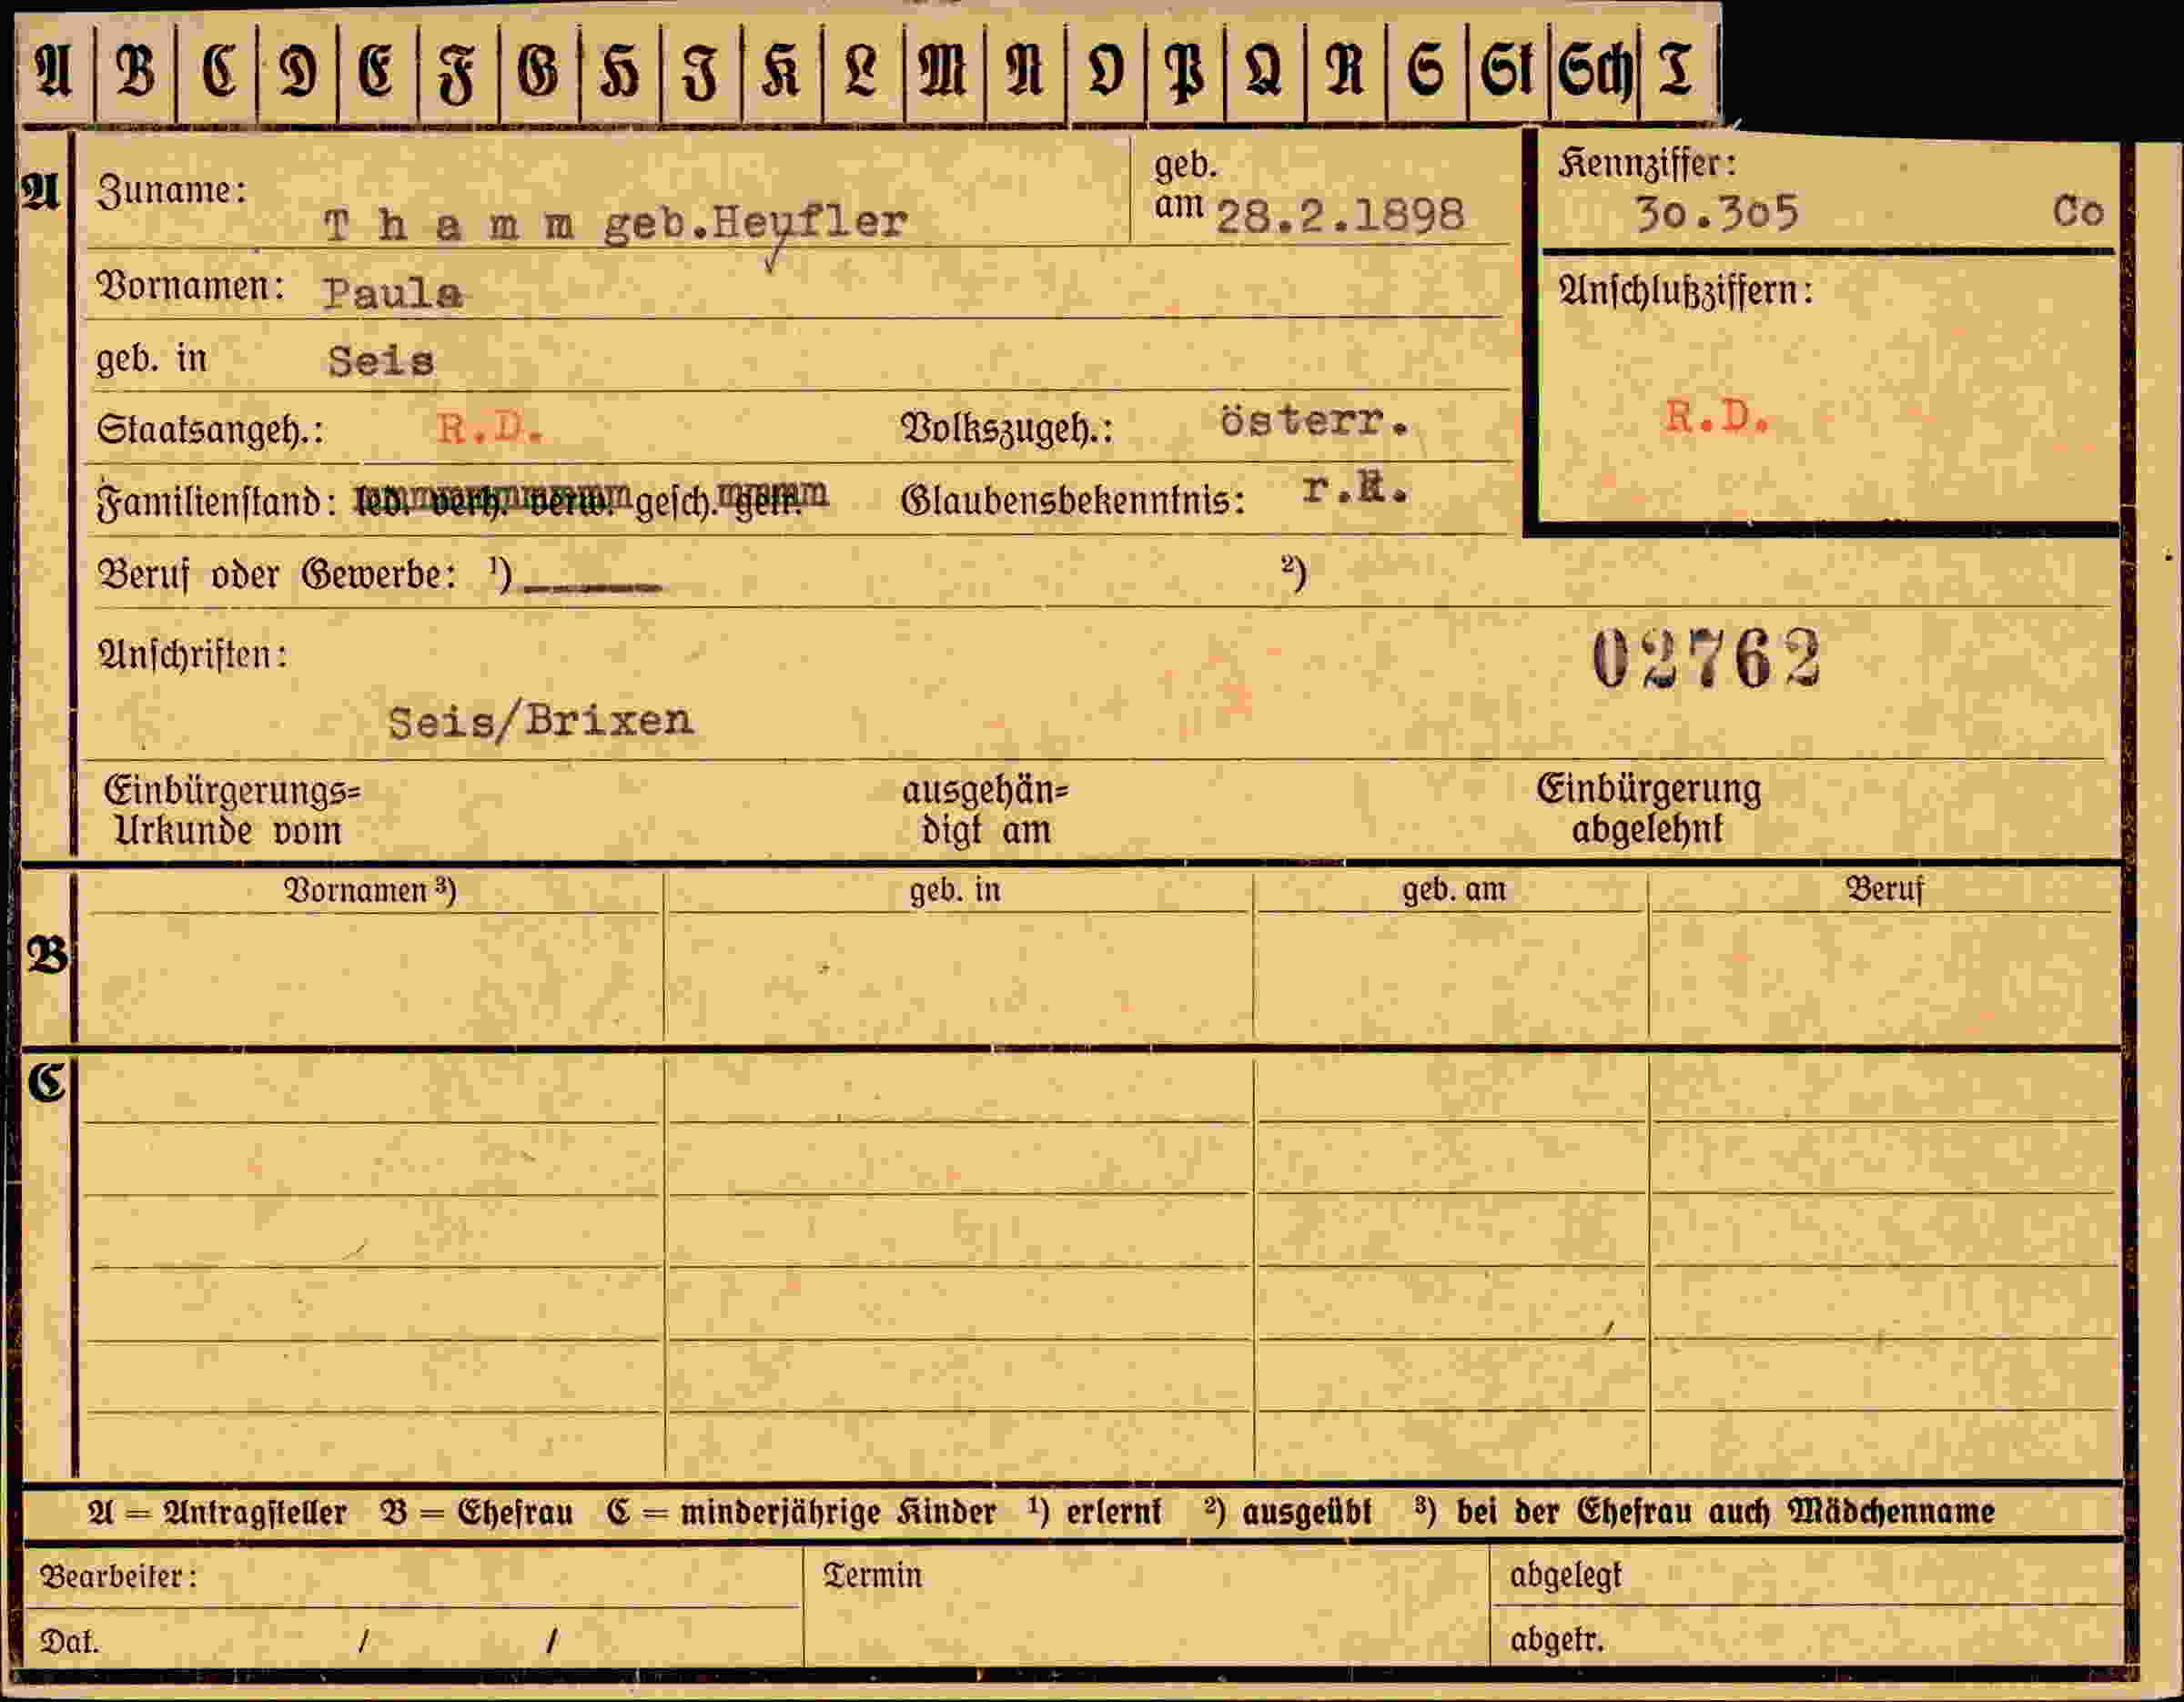 A B C D E F G H J K L M N O P Q R S St Sch T
A Zuname: T h a m m geb.Heufler geb. am 28.2.1898
Kennziffer: 30.305 Co
Vornamen: Paula
Anschlußziffern:
R.D.
geb. in Seis
Staatsangeh.: R.D. Volkszugeh.: österr.
Familienstand: led. verh. verw. gesch. getr. Glaubensbekenntnis: r.K.
Beruf oder Gewerbe: ¹) _____ ²)
Anschriften: 02762
Seis/Brixen
Einbürgerungs= ausgehän= Einbürgerung
Urkunde vom digt am abgelehnt
Vornamen ³) geb. in geb. am Beruf
B
C
A = Antragsteller B = Ehefrau C = minderjährige Kinder ¹) erlernt ²) ausgeübt ³) bei der Ehefrau auch Mädchenname
Bearbeiter: Termin abgelegt
Dat. / / abgetr.